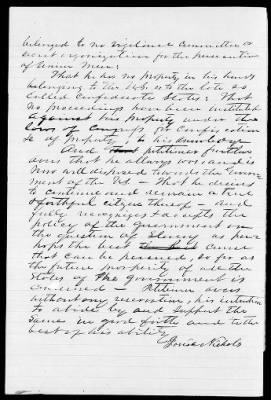 belonged to no vigilance committee or
secret organization for the persecution
of Union Men;
That he has no property in his hands
belonging to the U.S. or to the late so
called Confederate States: That
no proceedings have been instituted
against his property under the
laws of congress for Confiscation
&c of property to his knowledge
And petitioner further
avers that he always was and is
now well disposed towards the Govern-
ment of the US - That he desires
to continue and remain a true
& faithful citizen thereof - and
fully recognizes & accepts the
policy of the Government on
the question of slavery as per-
haps the best course
that can be pursued, so far as
the future prosperity of all the
States of the Government is
concerned - Petitioner avers
without any reservation, his intention
to abide by and support the
same in good faith and to the
best of his ability
Nichols